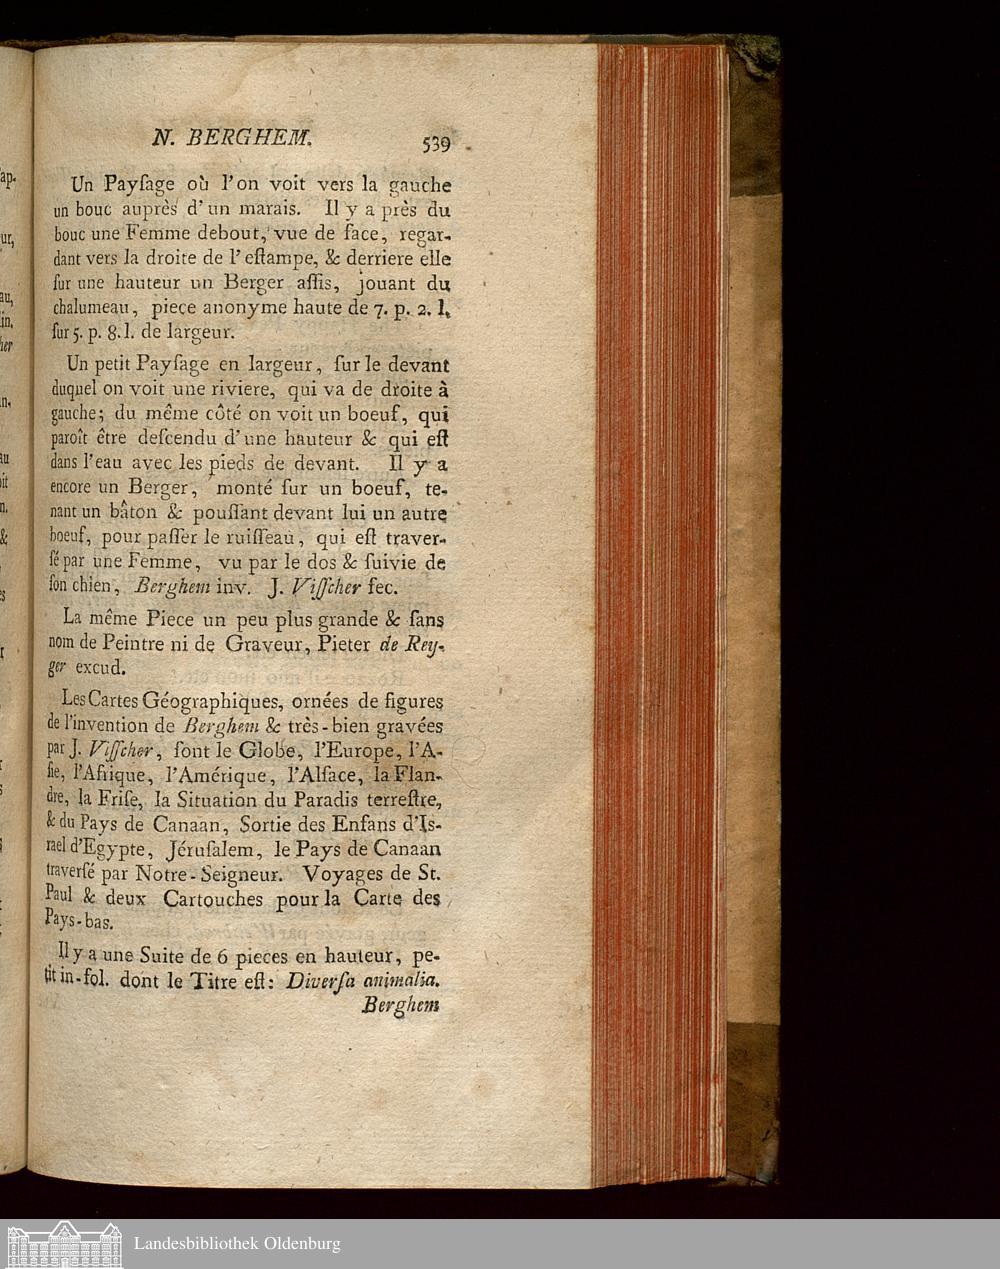 N. BERGHEM. 539
Un Payſage où l'on voit vers la gauche
un bouc auprès d'un marais. Il y a près du
bouc une Femme debout, vue de face, regar-
dant vers la droite de l'eſtampe, & derriere elle
ſur une hauteur un Berger aſſis, jouant du
chalumeau, piece anonyme haute de 7. p. 2. l.
ſur 5. p. 8. l. de largeur.
Un petit Payſage en largeur, ſur le devant
duquel on voit une riviere, qui va de droite à
gauche; du même côté on voit un boeuf, qui
paroît être deſcendu d'une hauteur & qui eſt
dans l'eau avec les pieds de devant. Il y a
encore un Berger, monté ſur un boeuf, te-
nant un bâton & pouſſant devant lui un autre
boeuf, pour paſſer le ruiſſeau, qui eſt traver-
ſé par une Femme, vu par le dos & ſuivie de
ſon chien, Berghem inv. J. Viſſcher fec.
La même Piece un peu plus grande & ſans
nom de Peintre ni de Graveur, Pieter de Rey-
ger excud.
Les Cartes Géographiques, ornées de figures
de l'invention de Berghem & très-bien gravées
par J. Viſſcher, ſont le Globe, l'Europe, l'A-
ſie, l'Afrique, l'Amérique, l'Alſace, la Flan-
dre, la Friſe, la Situation du Paradis terreſtre,
& du Pays de Canaan, Sortie des Enfans d'Is-
rael d'Egypte, Jéruſalem, le Pays de Canaan
traverſé par Notre-Seigneur. Voyages de St.
Paul & deux Cartouches pour la Carte des
Pays-bas.
Il y a une Suite de 6 pieces en hauteur, pe-
tit in-fol. dont le Titre eſt: Diverſa animalia.
Berghem
ap.
ur,
au,
in.
her
n.
au
oit
n.
&
Landesbibliothek Oldenburg